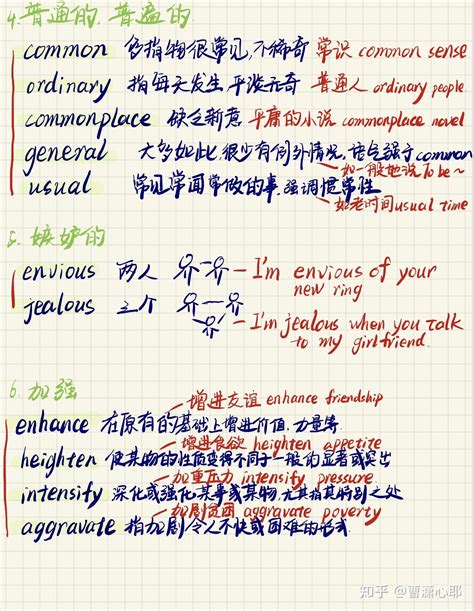 4.普通的,普遍的
common 多指物很常见,不稀奇 常识 common sense
ordinary 指每天发生,平淡无奇 普通人 ordinary people
commonplace 缺乏新意 平庸的小说 commonplace novel
general 大多如此,很少有例外情况,语气强于common
如一般地说To be~
usual 常见常闻常做的事,强调惯常性
如老时间usual time
5.嫉妒的
envious 两人 I'm envious of your
new ring
jealous 三个
I'm jealous when you talk
to my girlfriend.
6.加强
增进友谊 enhance friendship
enhance 在原有的基础上增进价值.力量等.
增进食欲 heighten appetite
heighten 使某物的性质变得不同于一般的显著或突出
加重压力 intensify pressure
intensify 深化或强化某事或某物,尤其指其特别之处
加剧贫困 aggravate poverty
aggravate 指加剧令人不快或困难的形式.
知乎 @曹潇心耶